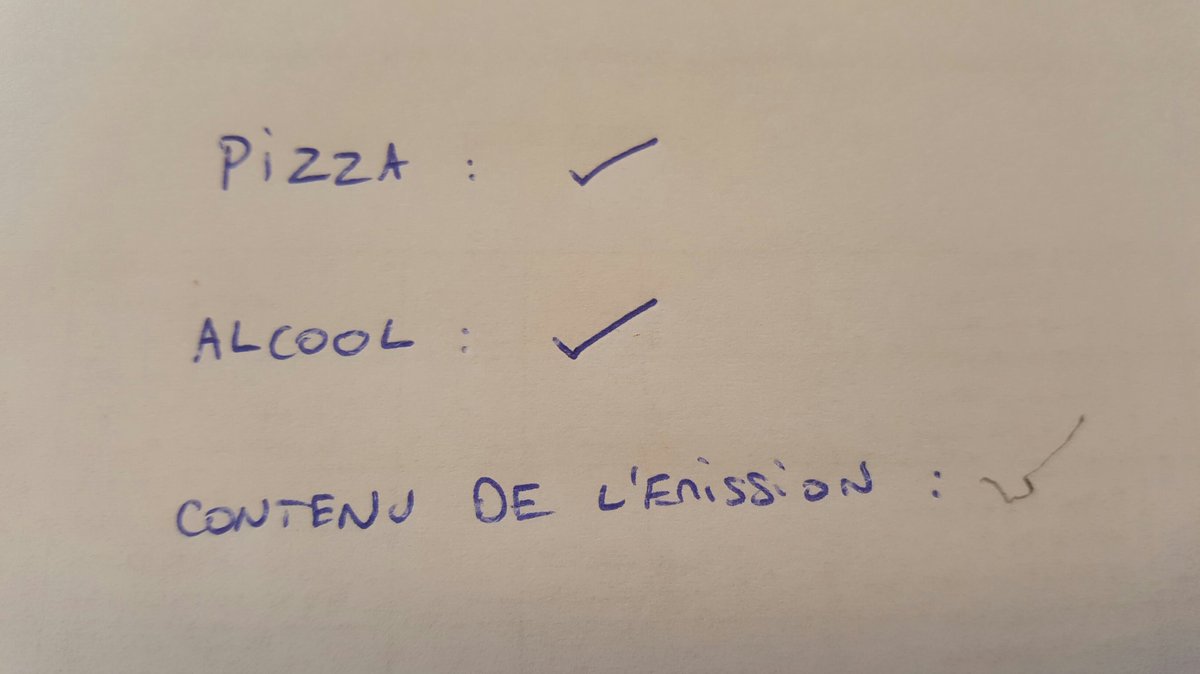 PiZZA : ✓
ALCOOL : ✓
CONTENU DE L'EmissioN : ✓